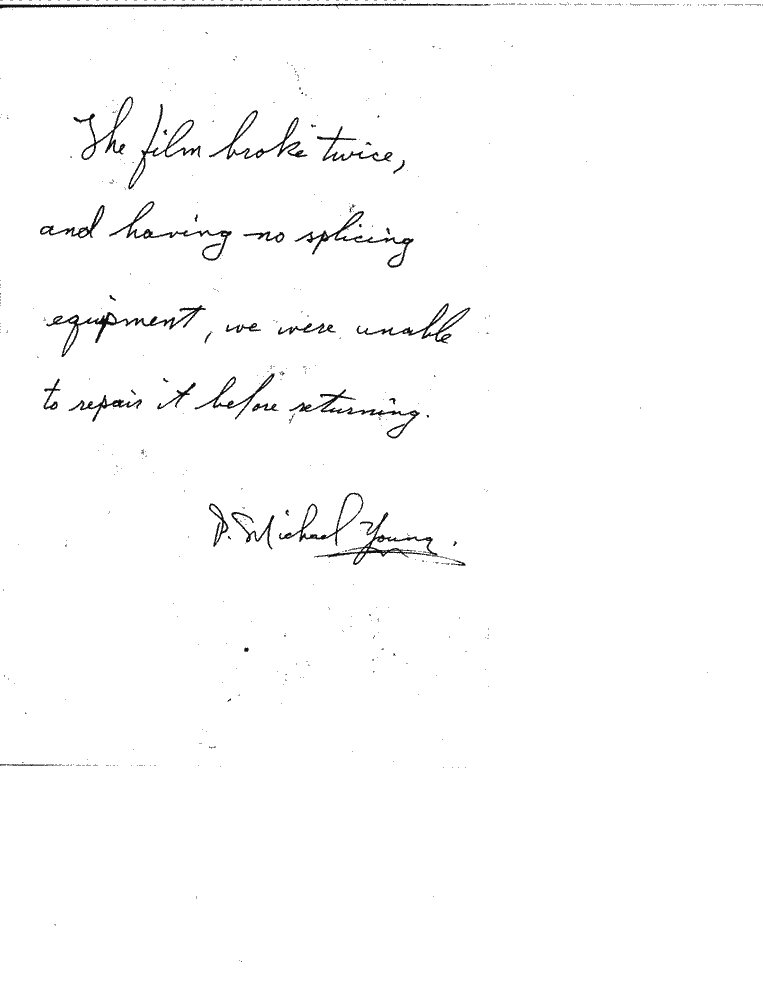 The film broke twice,
and having no splicing
equipment, we were unable
to repair it before returning.
P. Michael Young.